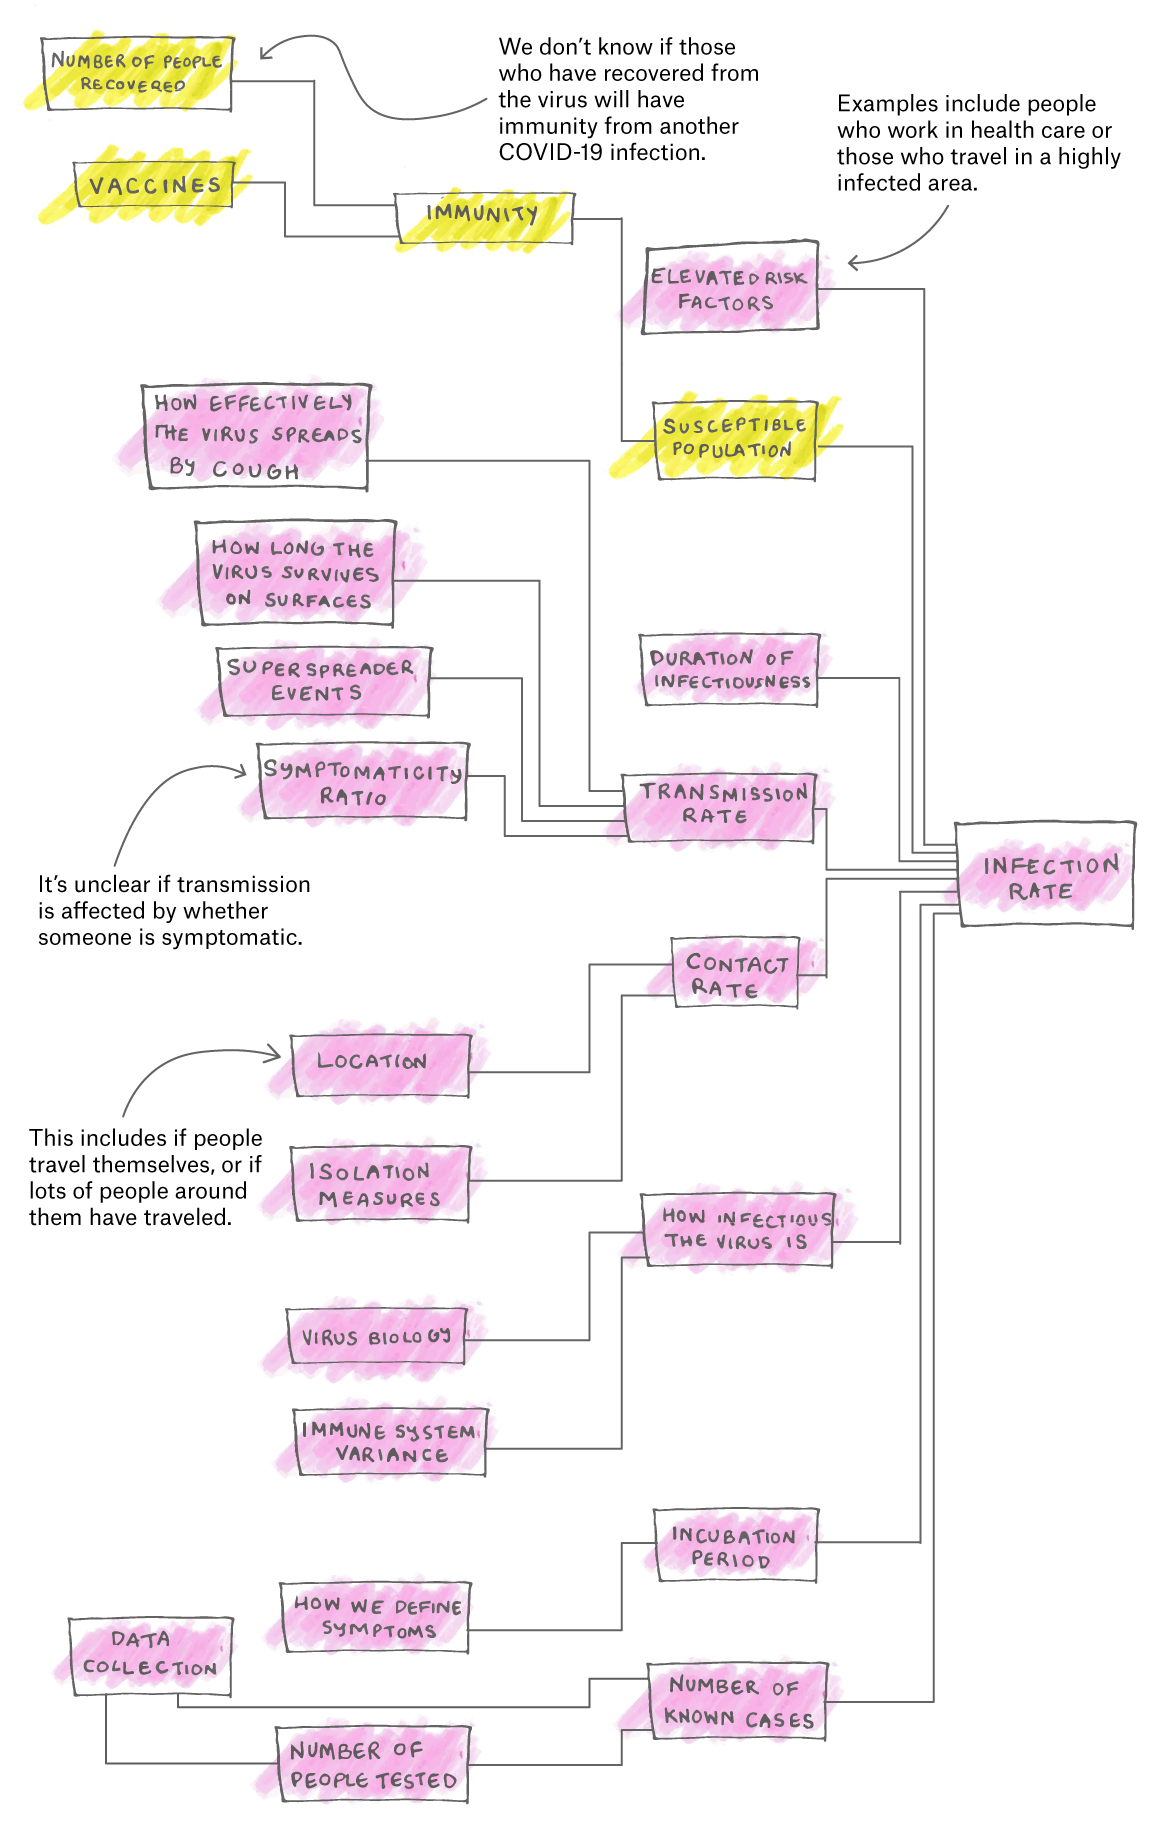 NUMBER OF PEOPLE
RECOVERED
We don’t know if those
who have recovered from
the virus will have
immunity from another
COVID-19 infection.
Examples include people
who work in health care or
those who travel in a highly
infected area.
VACCINES
IMMUNITY
ELEVATED RISK
FACTORS
HOW EFFECTIVELY
THE VIRUS SPREADS
BY COUGH
SUSCEPTIBLE
POPULATION
HOW LONG THE
VIRUS SURVIVES
ON SURFACES
SUPERSPREADER
EVENTS
DURATION OF
INFECTIOUSNESS
SYMPTOMATICITY
RATIO
TRANSMISSION
RATE
INFECTION
RATE
It’s unclear if transmission
is affected by whether
someone is symptomatic.
CONTACT
RATE
LOCATION
This includes if people
travel themselves, or if
lots of people around
them have traveled.
ISOLATION
MEASURES
HOW INFECTIOUS
THE VIRUS IS
VIRUS BIOLOGY
IMMUNE SYSTEM
VARIANCE
INCUBATION
PERIOD
HOW WE DEFINE
SYMPTOMS
DATA
COLLECTION
NUMBER OF
KNOWN CASES
NUMBER OF
PEOPLE TESTED